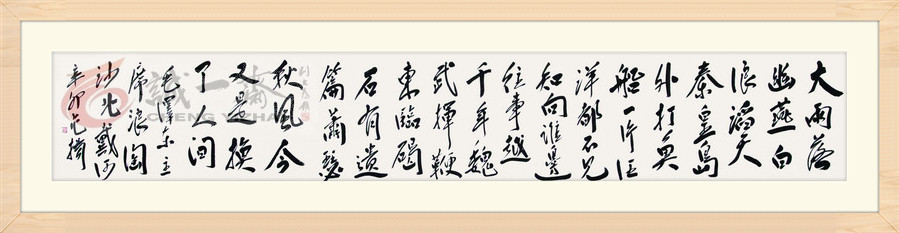 大雨落
幽燕白
浪滔天
秦皇島
外打魚
船一片汪
洋都不見
知向誰邊
往事越
千年魏
武揮鞭
東臨碣
石有遺
篇蕭瑟
秋風今
又是換
了人間
毛澤東主
席浪淘
沙北戴河
辛卯